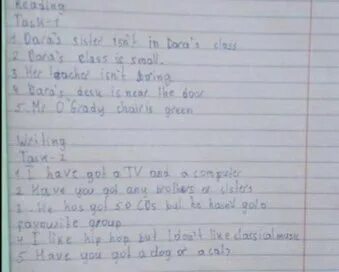 Reading
Task-1
1 Dara's sister isn't in Dara's class
2 Dara's class is small.
3 Her teacher isn't boring
4 Dara's desk is near the door
5 Mr O'Grady chair is green
Writing
Task-2
1 I have got a TV and a computer
2 Have you got any brothers or sisters
3 He has got 50 CDs but he hasn't got a
favourite group
4 I like hip hop but I don't like classical music
5 Have you got a dog or a cat?